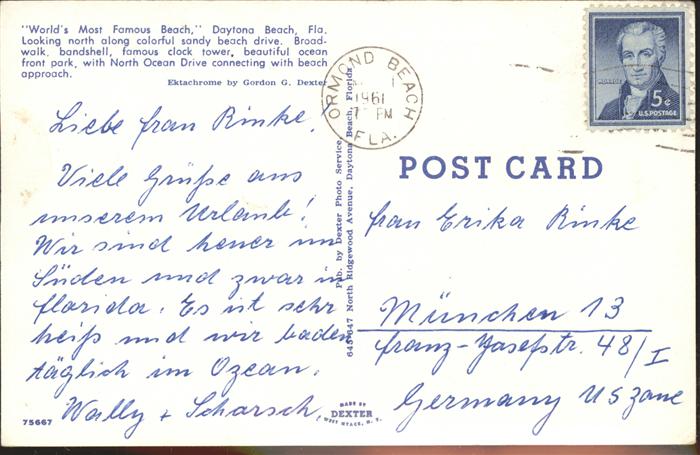 "World's Most Famous Beach," Daytona Beach, Fla.
Looking north along colorful sandy beach drive. Broad-
walk, bandshell, famous clock tower, beautiful ocean
front park, with North Ocean Drive connecting with beach
approach.
Ektachrome by Gordon G. Dexter
Liebe Frau Rinke,
Viele Grüße aus
unserem Urlaub!
Wir sind heuer im
Süden und zwar in
Florida. Es ist sehr
heiß und wir baden
täglich im Ozean.
Wally + Scharsch.
75667
MADE BY
DEXTER
WEST NYACK, N. Y.
Pub. by Dexter Photo Service
645-647 North Ridgewood Avenue, Daytona Beach, Florida
ORMOND BEACH
1
1961
7 PM
FLA.
5¢
U.S. POSTAGE
POST CARD
Frau Erika Rinke
München 13
Franz-Josefstr. 48/I
Germany US Zone